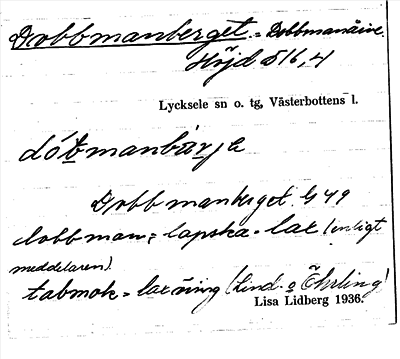 Dobbmanberget = Dobbmanåive.
Höjd 516,4
Lycksele sn o. tg, Västerbottens l.
dótmanbárjє
Dobbmanberget G 49
dobbman = lapska = lax (enligt
meddelaren).
tabmok = laxöring (Lind. o Öhrling)
Lisa Lidberg 1936.